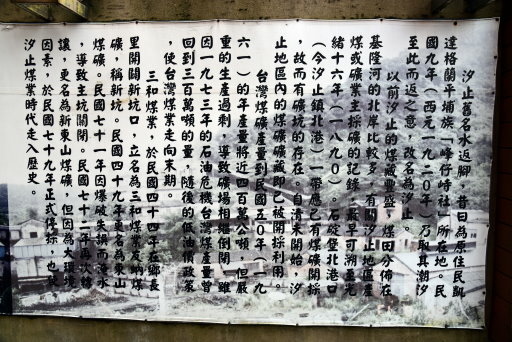 汐止舊名水返腳，昔日為原住民凱
達格蘭平埔族「峰仔峙社」所在地。民
國九年（西元一九二０年）乃取其潮汐
至此而返之意，改名為汐止。
以前汐止的煤藏豐盛，煤田分佈在
基隆河的北岸比較多，有關汐止地區產
煤或礦業主採礦的記錄，最早可溯至光
緒十六年（一八九０）。石碇堡北港口
（今汐止鎮北港）一帶應已有煤礦開採
，故而有礦坑的存在。自清末開始，汐
止地區內的煤礦礦藏即已被開採利用。
台灣煤礦產量到民國五０年（一九
六一）的年產量將近四百萬公噸，但嚴
重的生產過剩，導致礦場相繼倒閉。雖
因一九七三年的石油危機台灣煤產量曾
回到三百萬噸的量，隨後的低油價政策
，使台灣煤業走向末期。
三和煤業，於民國四十四年在鄉長
里開闢新坑口，立名為三和煤業友蚋煤
礦，稱新坑。民國四十九年更名為東山
煤礦。民國七十一年因爆破失誤而淹水
，導致主坑關閉。民國七十二年再次轉
讓，更名為新東山煤礦，但因為大環境
因素，於民國七十九年正式停採，也使
汐止煤業時代走入歷史。